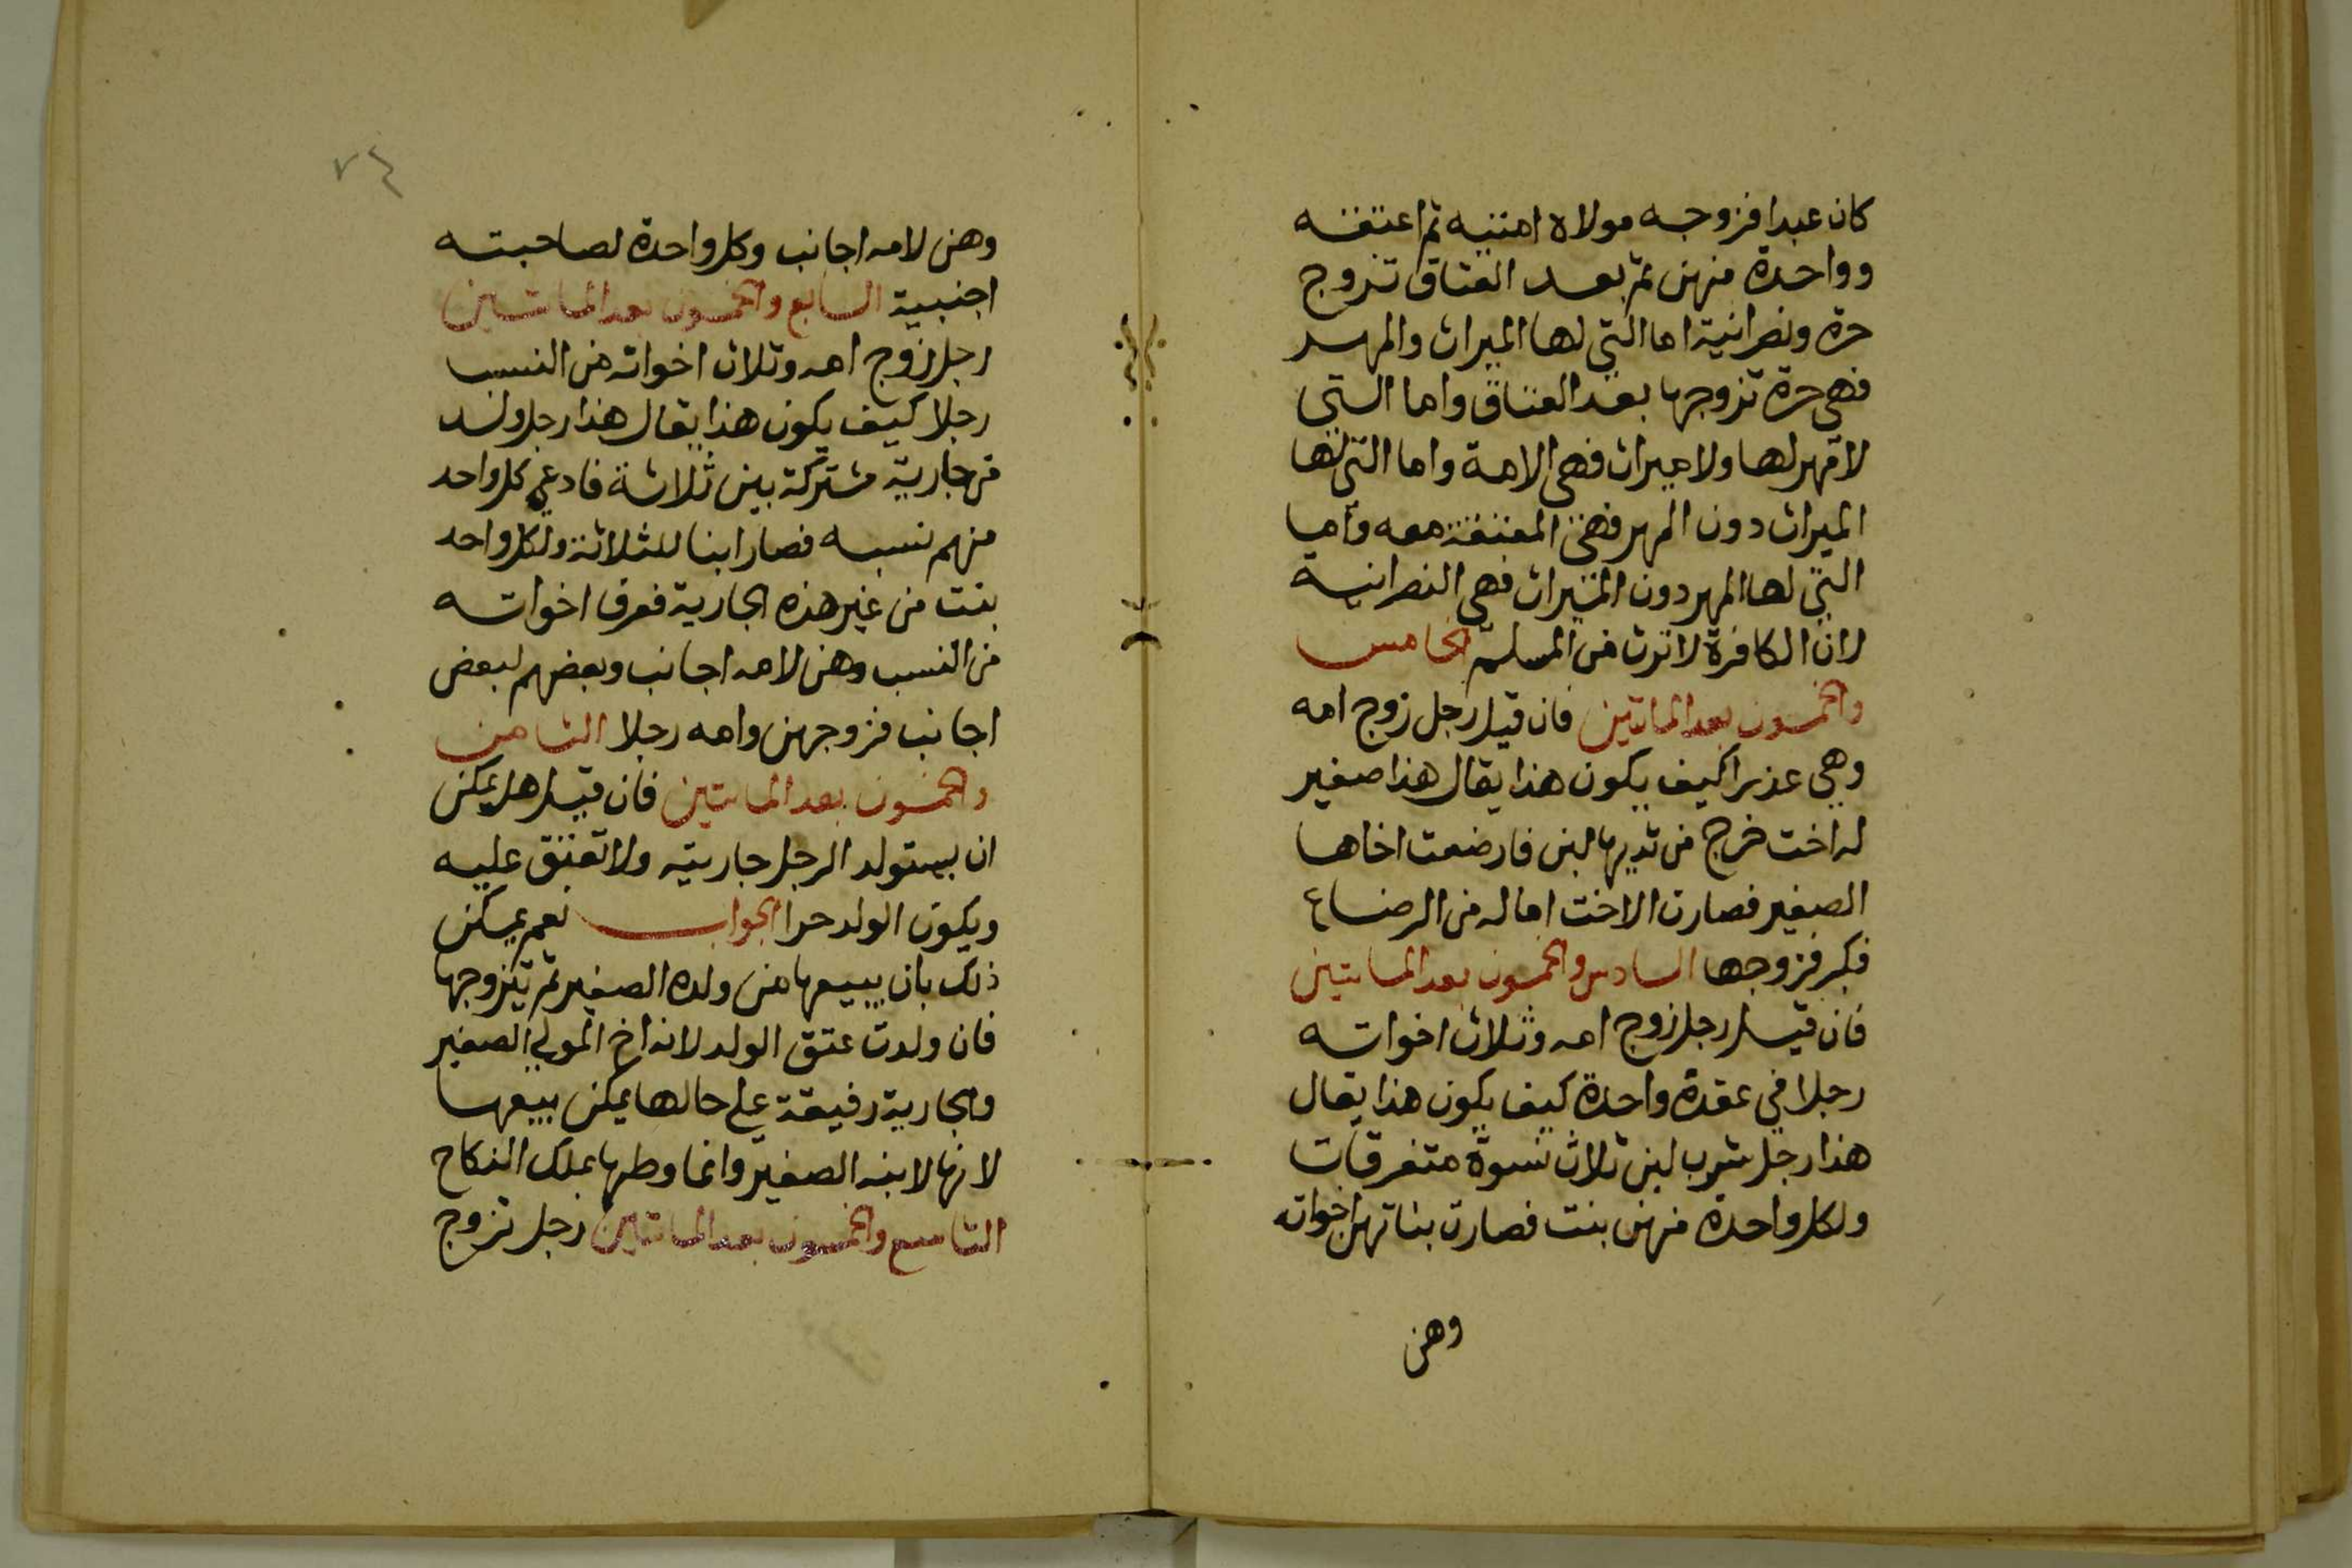 كان عبدا فزوجه مولاه امتيه ثم اعتقه
وواحدة منهن ثم بعد العتاق تزوج
حرة ونصرانية اما التي لها الميراث والمهر
فهي حرة تزوجها بعد العتاق واما التي
لا مهر لها ولا ميراث فهي الامة واما التي لها
الميراث دون المهر فهي المعتقة معه واما
التي لها المهر دون الميراث فهي النصرانية
لان الكافرة لا ترث من المسلم الخامس
والخمسون بعد الماتين فان قيل رجل زوج امه
وهي عذرا كيف يكون هذا يقال هذا صغير
له اخت خرج من ثديها لبن فارضعت اخاها
الصغير فصارت الاخت اما له من الرضاع
فكبر فزوجها السادس والخمسون بعد الماىتين
فان قيل رجل زوج امه وثلاث اخواته
رجلا في عقدة واحدة كيف يكون هذا يقال
هذا رجل شرب لبن ثلاث نسوة متفرقات
ولكل واحدة منهن بنت فصارت بناتهن اخواته
وهن
٧٤
وهن لامه اجانب وكل واحدة لصاحبته
اجنبية السابع والخمسون بعد الماىتين
رجل زوج امه وثلاث اخواته من النسب
رجلا كيف يكون هذا يقال هذا رجل ولد
من جارية مشتركة بين ثلاثة فادعي كل واحد
منهم نسبه فصار ابنا للثلاثة ولكل واحد
بنت من غير هذه الجارية فعرف اخواته
من النسب وهن لامه اجانب وبعضهم لبعض
اجانب فزوجهن وامه رجلا الثامن
والخمسون بعد الماىتين فان قيل هل يمكن
ان يستولد الرجل جاريته ولا تعتق عليه
ويكون الولد حرا الجواب نعم يمكن
ذلك بان يبيعها من ولده الصغير ثم يتزوجها
فان ولدت عتق الولد لانه اخ المولي الصغير
والجارية رقيقة علي حالها يمكن بيعها
لانها لابنه الصغير وانما وطها بملك النكاح
التاسع والخمسون بعد الماىتين رجل تزوج